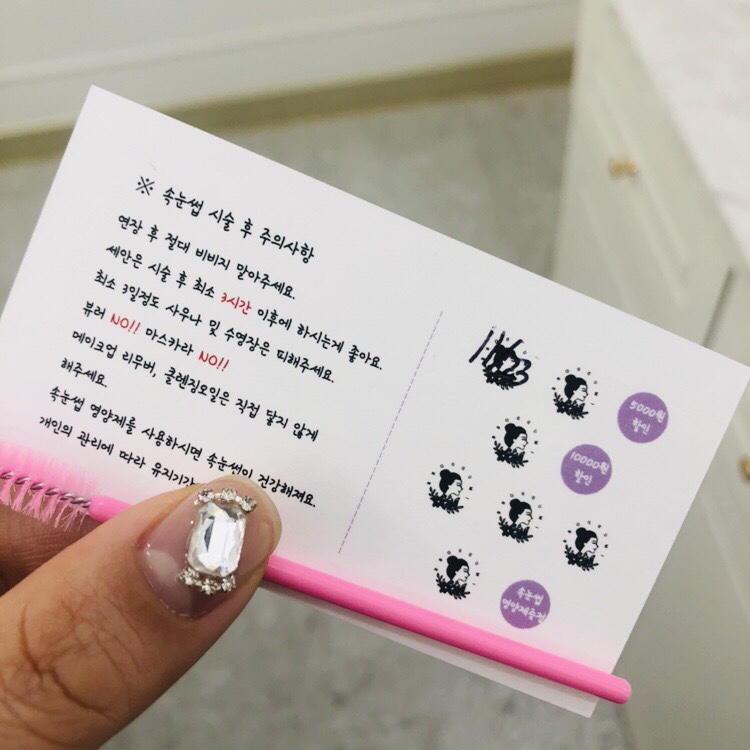 ※ 속눈썹 시술 후 주의사항
연장 후 절대 비비지 말아주세요.
세안은 시술 후 최소 3시간 이후에 하시는게 좋아요.
최소 3일정도 사우나 및 수영장은 피해주세요.
뷰러 NO!! 마스카라 NO!!
메이크업 리무버, 클렌징오일은 직접 닿지 않게
해주세요.
속눈썹 영양제를 사용하시면 속눈썹이 건강해져요.
개인의 관리에 따라 유지기간
5000원
할인
10000원
할인
속눈썹
영양제증정